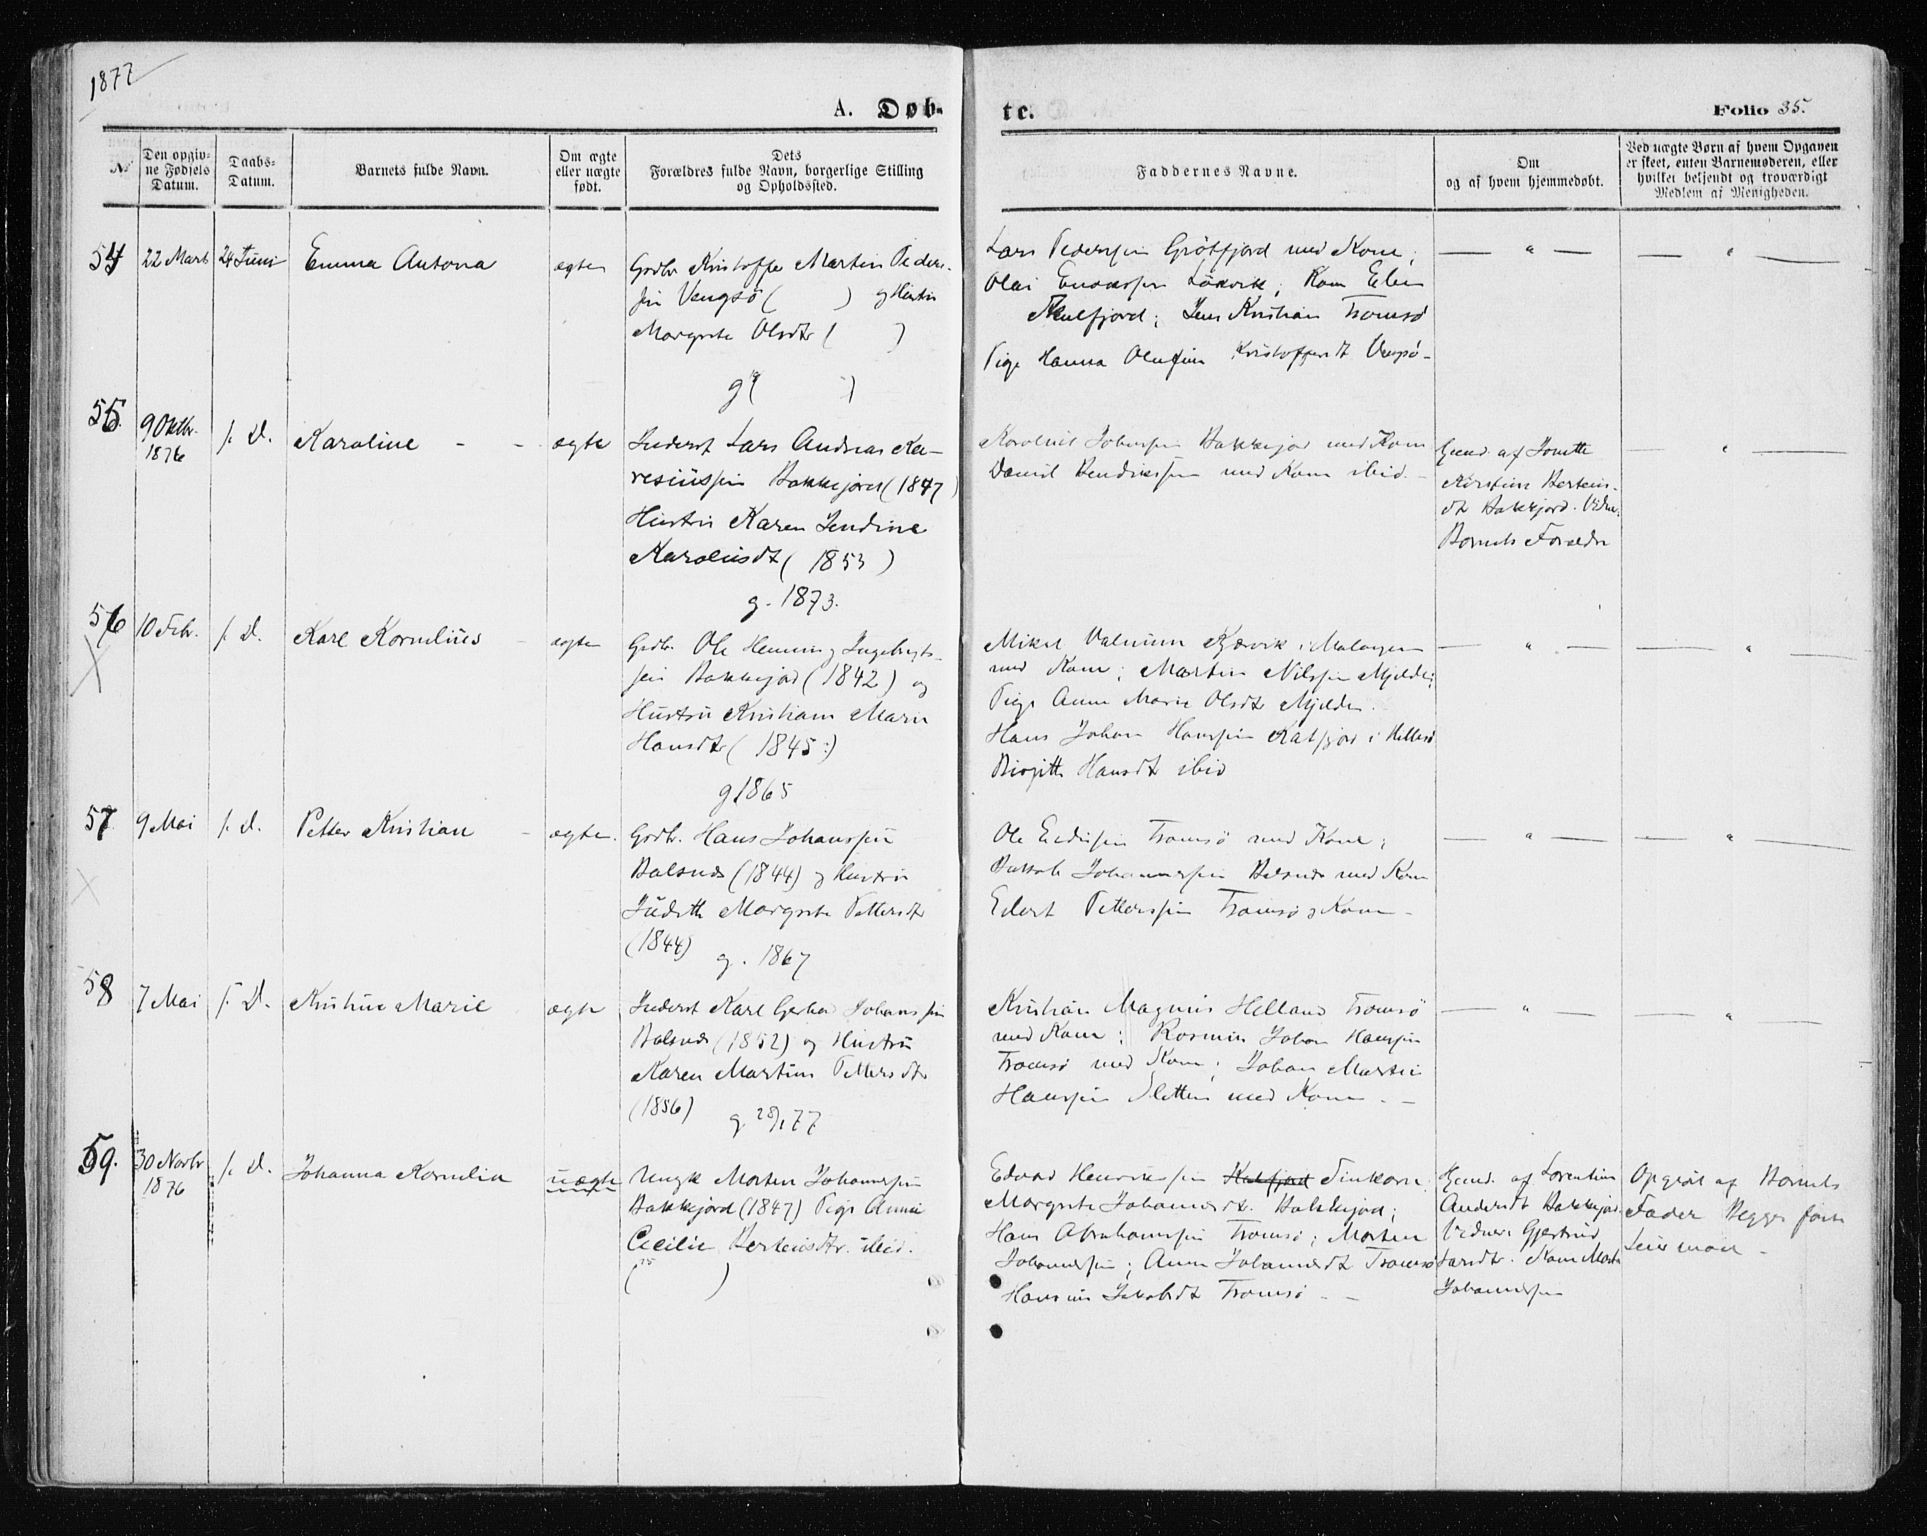 1877
A. Døb-
te.
Folio 35.
№
Den opgiv-
ne Fødsels
Datum.
Daabs-
Datum.
Barnets fulde Navn.
Om ægte
eller uægte
født.
Dets
Forældres fulde Navn, borgerlige Stilling
og Opholdssted.
Faddernes Navne.
Om
og af hvem hjemmedøbt.
Ved uægte Børn af hvem Opgaven
er skeet, enten Barnemoderen, eller
hvilket bekjendt og troværdigt
Medlem af Menigheden.
54
22 Marts
24 Juni
Emma Antona
ægte
Grdbr Kristoffer Martin Peders-
sen Vengsö ( ) og Hustru
Margrete Olsdtr ( )
g ( )
Lars Pederssen Grötfjord med Kone;
Olai Enokssen Lökvik; Kone Elen
Jens Kristian Tromsö
Pige Hanna Olufine Kristoffersdt Vengsö-
55.
9 Oktbr.
1876
s. D.
Karoline - -
ægte
Inderst Lars Andreas Ka-
resiussen Bakkejord (1847)
Hustru Karen Jendine
Karolusdt ( 1853 )
g. 1873.
Karolius Johnssen Bakkejord med Kone
Daniel Hendrikssen med Kone ibid. -
Hjemd. af Jonette
Kirstine Bertens-
dt Bakkejord. Vidne:
Barnets Forældre
56
10 Febr.
s. D.
Karl Kornelius
ægte
Grdbr. Ole Henning Ingebrigts-
sen Bakkejord (1842) og
Hustru Kristiane Marie
Hansdtr ( 1845 :)
g 1865
Mikal Kjærvik i Malangen
med Kone; Martin Nilssen Mjelde;
Pige Anne Marie Olsdtr Mjelde.
Hans Johan Hanssen Katfjord i Hillesö
Birgitte Hansdt ibid
57
9 Mai
s. D.
Petter Kristian
ægte.
Grdbr. Hans Johanssen
Balsnes (1844) og Hustru
Judith Margrete Pettersdtr
(1844)
g. 1867
Ole Tromsö med Kone;
Johannessen Balsnes med Kone
Edvart Petterssen Tromsö og Kone -
58
7 Mai
s. D.
Kristine Marie
ægte
Inderst Karl Gerhard Johanssen
Balsnes (1852) og Hustru
Karen Martine Pettersdtr
(1856)
g. 28/1 77
Kristian Magnus Helland Tromsö
med Kone; Rasmus Johan Hanssen
Tromsö med Kone; Johan Martin
Hanssen Sletten med Kone. -
59.
30 Novbr
1876
s. D.
Johanna Kornelia
uægte
Ungk Morten Johannessen
Bakkejord (1847) Pige Anne
Cecilie Bertensdtr. ibid.
( )
Edvard Henrikssen Katfjord Finkarn.
Margrete Johannesdt. Bakkejord;
Hans Abrahamssen Tromsö; Morten
Johannessen; Anne Johannesdt Tromsö
Hansine Jakobsdt Tromsö - -
Hjemd. af Lorentine
Andersdt Bakkejord.
Vidner: Gjertrud
Larsdtr. Kone Morten
Johannessen
Opgivet af Barnets
Fader Begges förste
Leiermaal -